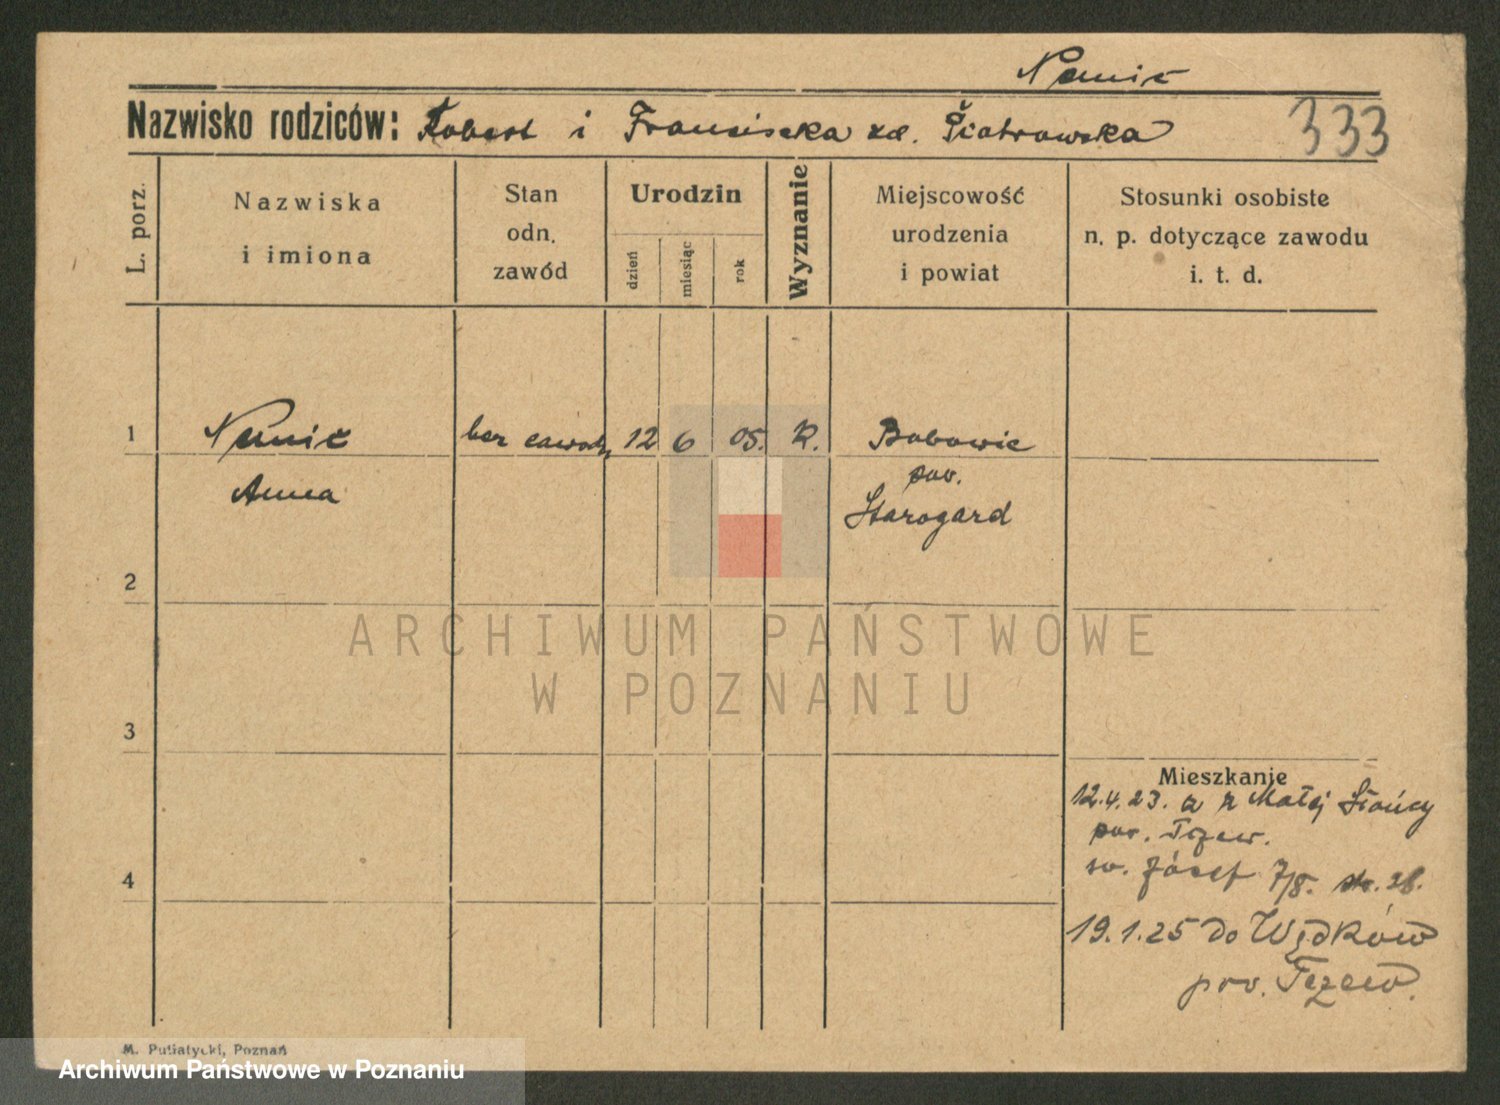 Nemić
Nazwisko rodziców: Robert i Franciszka zd. Piotrowska 333
L. porz.
Nazwiska
i imiona
Stan
odn.
zawód
Urodzin
dzień
miesiąc
rok
Wyznanie
Miejscowość
urodzenia
i powiat
Stosunki osobiste
n. p. dotyczące zawodu
i. t. d.
1 bez zawodu 12 6 05. R. Bobowie
Anna
pow.
Starogard
2
3
4
Mieszkanie
12.4.23. z Małej Słońcy
pow. Tczew.
św. Józef 7/8. str. 28.
19.1.25 do Wędków
pow. Tczew.
M. Putiatycki, Poznań
ARCHIWUM PAŃSTWOWE
W POZNANIU
Archiwum Państwowe w Poznaniu